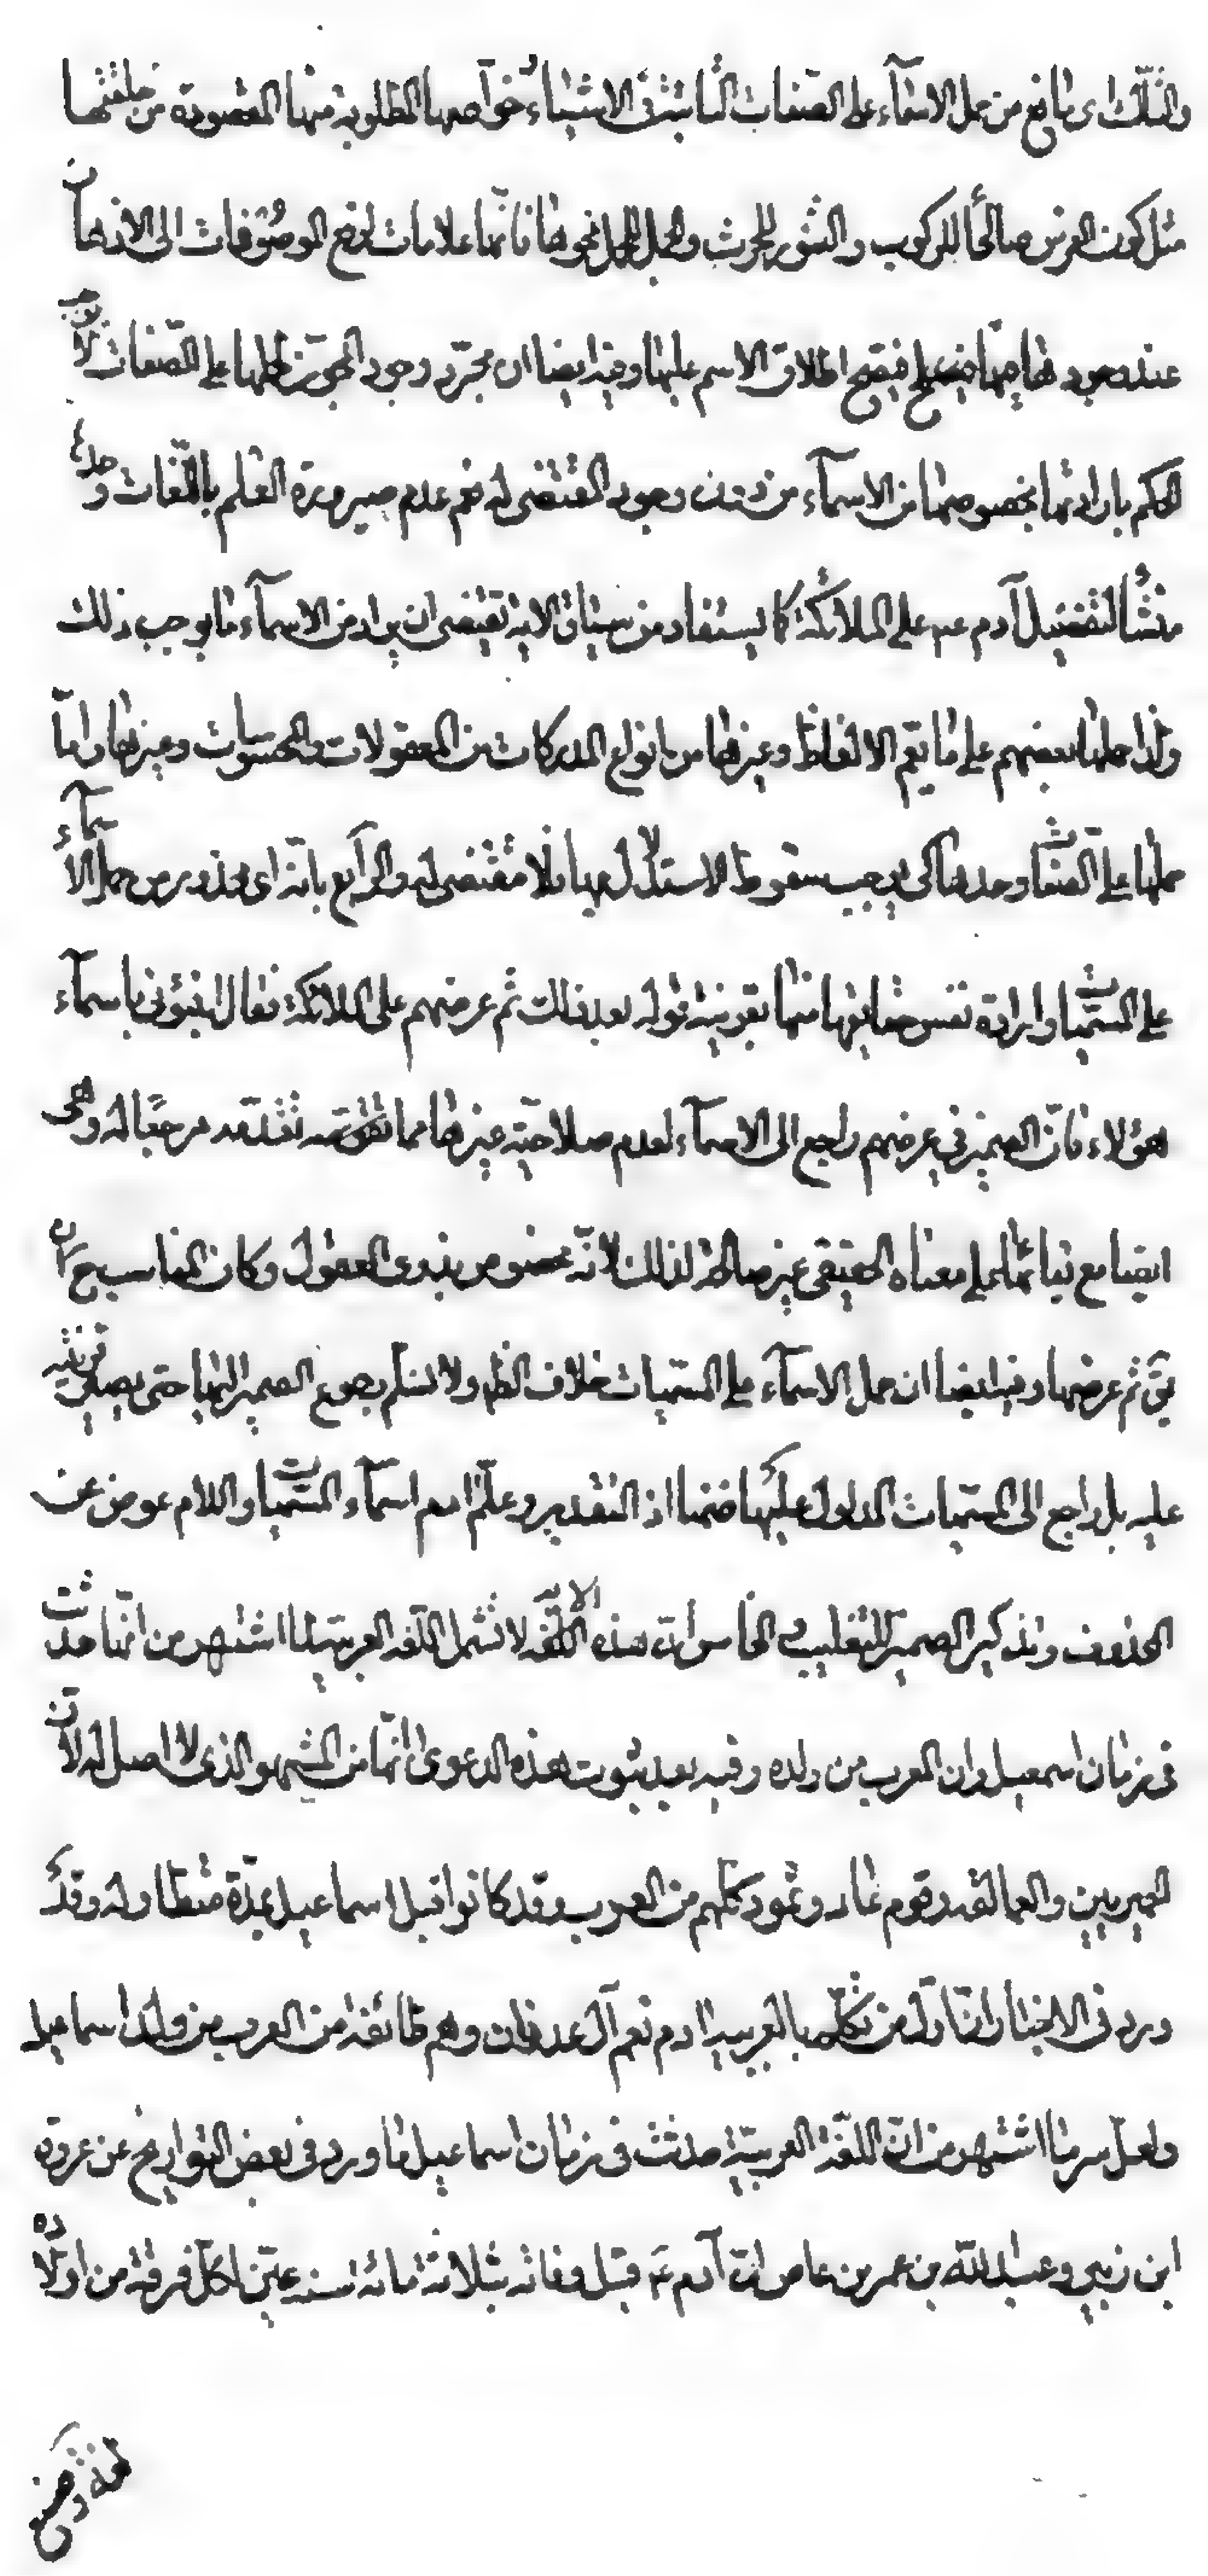 والثالث اى مانع من حمل الاسمآء على الصفات الثابتة فى الاشيآء خواصها المطلوبة منها المقصودة من خلقتها
مثل كون الفرس صالحًا للركوب والثور للحرث والجمل للحمل نحوها فانها علامات لرفع الموصوفات الى الاذهان
عند صعودها فيصح اطلاق الاسم عليها وفيه ايضا ان مجرّد وجود المجوّز لحملها على الصّفات لا يوجب
الحكم بارادتها بخصوصها من الاسمآء من دون وجود المقتضى له نعم عدم صيرورة العلم باللّغات وحده
منشأ لتفضيل آدم عم على الملائكة كما يستفاد من سياق الاية تقتضى ان يراد من الاسمآء ما يوجب ذلك
ولذا حملها بعضهم على ما يعم الالفاظ وغيرها من انواع المدركات من المعقولات والمحسوسات وغيرها وامّا
حملها على الصّفات وحدها كى يوجب سقوط الاستدلال بها فلا مقتضى له والرابع بانّه اى محذور من حمل الأسمآء
على المسمّيات وارادة نفس حقايقها منها بقرينة قوله بعد ذلك ثم عرضهم على الملائكة فقال انبئونى باسمآء
هؤلاء فانّ الضمير فى عرضهم راجع الى الاسمآء لعدم صلاحيّة غيرها مما تقدّمه مرجعًا له وهى
ايضا مع بقائها على معناه الحقيقى غير صالحة لذلك لانّه مخصوص بذوى العقول وكان المناسب ح ان
يقَ ثم عرضها وفيه ايضا ان حمل الاسمآء على المسمّيات خلاف الظ ولا نسلّم رجوع الضمير اليها حتى يصير قرينة
عليه بل راجع الى المسمّيات المدلول عليها ضمنا اذ التقدير وعلّم ادم اسمآء المسمّيات واللام عوض عن
المحذوف وتذكير الضمير للتغليب الخامس ان هذه الاية لا تشمل اللّغة العربية لما اشتهر من انّها حدثت
فى زمان اسمعيل وان العرب من ولده وفيه بعد ثبوت هذه الدعوى انّها من المشهور الذى لا اصل له لانّ
الحميريين والعمالقة وقوم عاد وثمود كلّهم من العرب وقد كانوا قبل اسماعيل بمدّة متطاولة وقد
ورد فى الاخبار انّ اوّل من تكلّم بالعربية ادم نعم آل عدنان وهم طائفة من العرب من ولد اسماعيل
ولعل سر ما اشتهر من انّ اللغة العربيّة حدثت فى زمان اسماعيل ما ورد فى بعض التواريخ عن عروة
ابن زبير وعبد اللّه بن عمر بن عاص انّ آدم عَ قبل وفاته بثلاثة مائة سنة عيّن لكلّ فرقة من اولاده